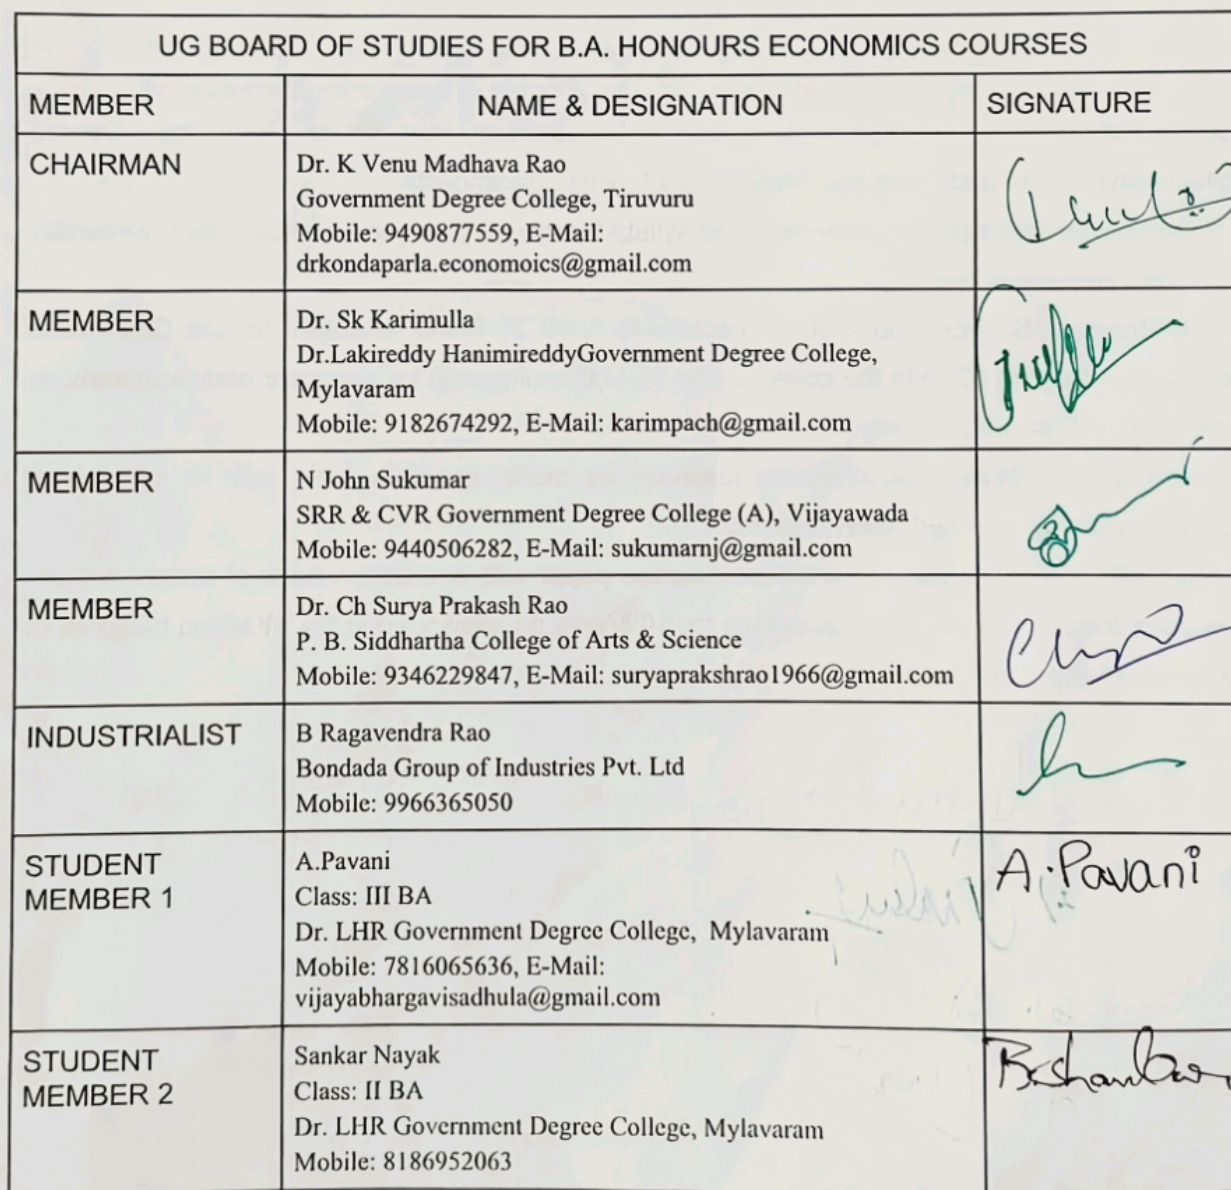 UG BOARD OF STUDIES FOR B.A. HONOURS ECONOMICS COURSES
MEMBER NAME & DESIGNATION SIGNATURE
CHAIRMAN
Dr. K Venu Madhava Rao
Government Degree College, Tiruvuru
Mobile: 9490877559, E-Mail:
drkondaparla.economoics@gmail.com
MEMBER
Dr. Sk Karimulla
Dr.Lakireddy HanimireddyGovernment Degree College,
Mylavaram
Mobile: 9182674292, E-Mail: karimpach@gmail.com
MEMBER
N John Sukumar
SRR & CVR Government Degree College (A), Vijayawada
Mobile: 9440506282, E-Mail: sukumarnj@gmail.com
MEMBER
Dr. Ch Surya Prakash Rao
P. B. Siddhartha College of Arts & Science
Mobile: 9346229847, E-Mail: suryaprakshrao1966@gmail.com
INDUSTRIALIST
B Ragavendra Rao
Bondada Group of Industries Pvt. Ltd
Mobile: 9966365050
STUDENT
MEMBER 1
A.Pavani
Class: III BA
Dr. LHR Government Degree College, Mylavaram
Mobile: 7816065636, E-Mail:
vijayabhargavisadhula@gmail.com
A.Pavani
STUDENT
MEMBER 2
Sankar Nayak
Class: II BA
Dr. LHR Government Degree College, Mylavaram
Mobile: 8186952063
B.shankar